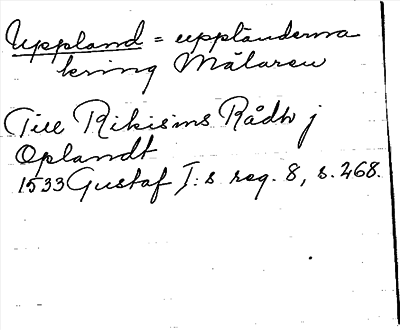 Uppland = uppländerna
kring Mälaren
Till Rikisins Rådh j
Oplandt
1533 Gustaf I:s reg. 8, s. 268.